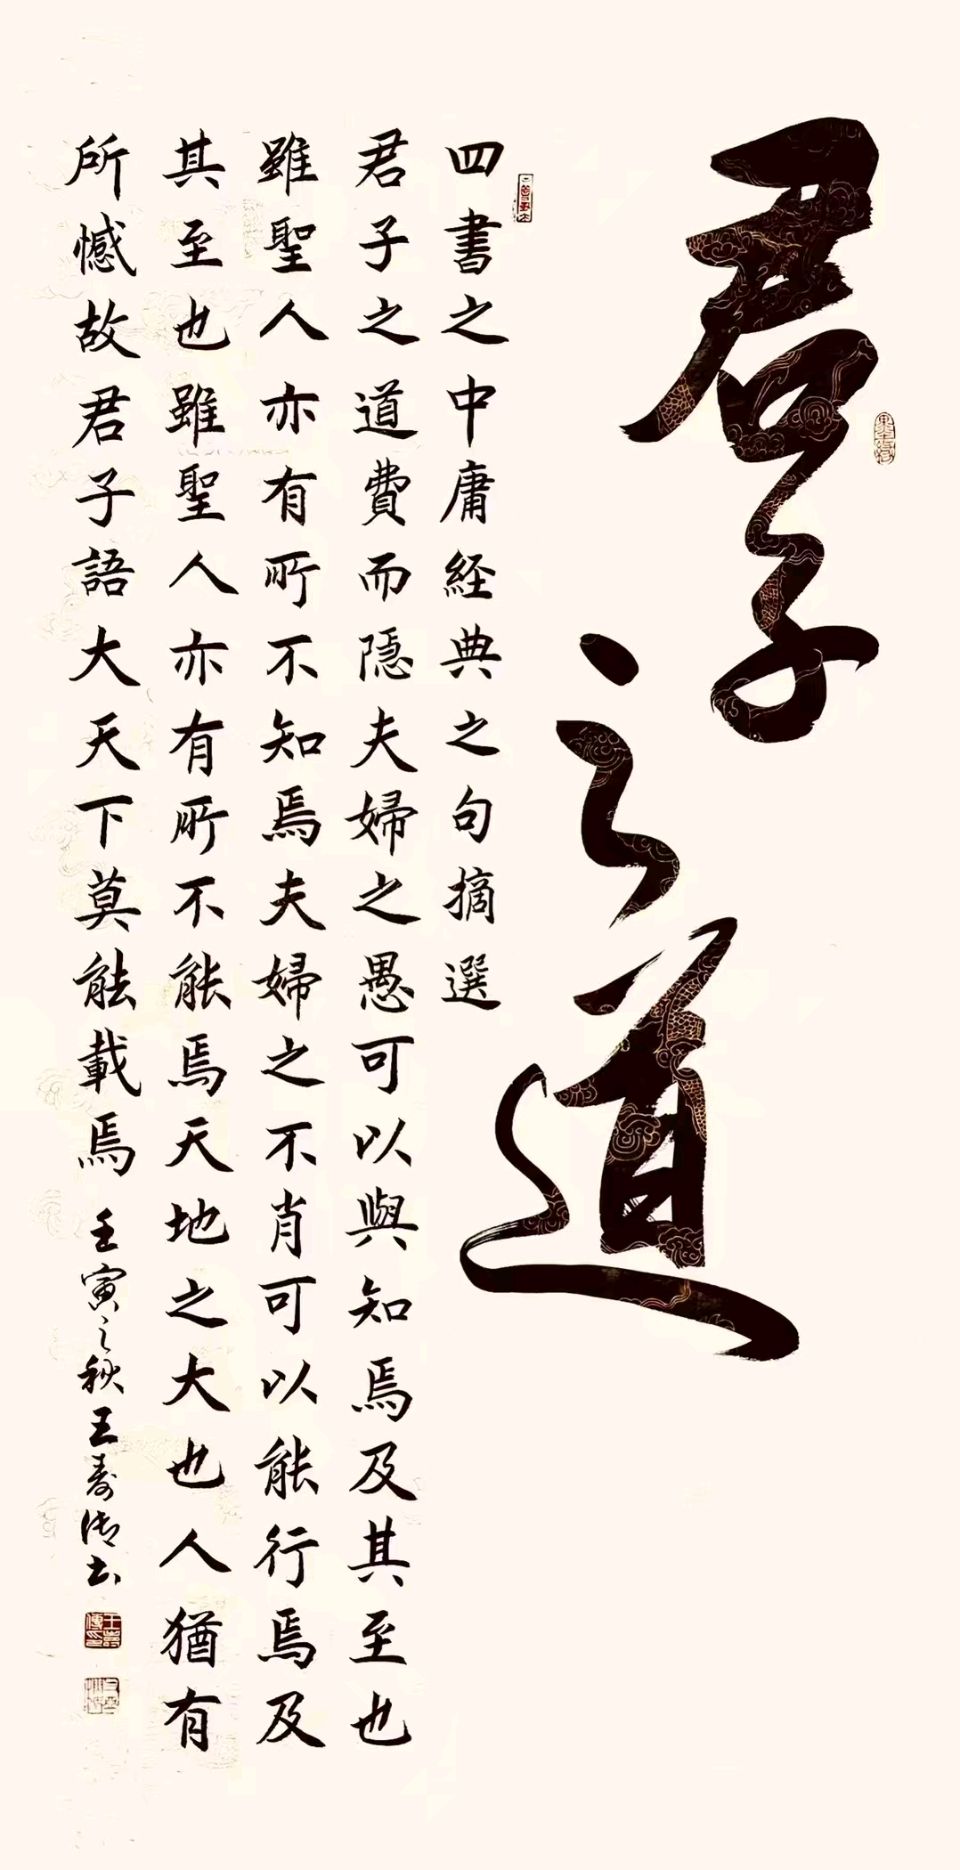 君子之道
四書之中庸経典之句摘選
君子之道費而隱夫婦之愚可以與知焉及其至也
雖聖人亦有所不知焉夫婦之不肖可以能行焉及
其至也雖聖人亦有所不能焉天地之大也人猶有
所憾故君子語大天下莫能載焉
壬寅之秋王壽傳書